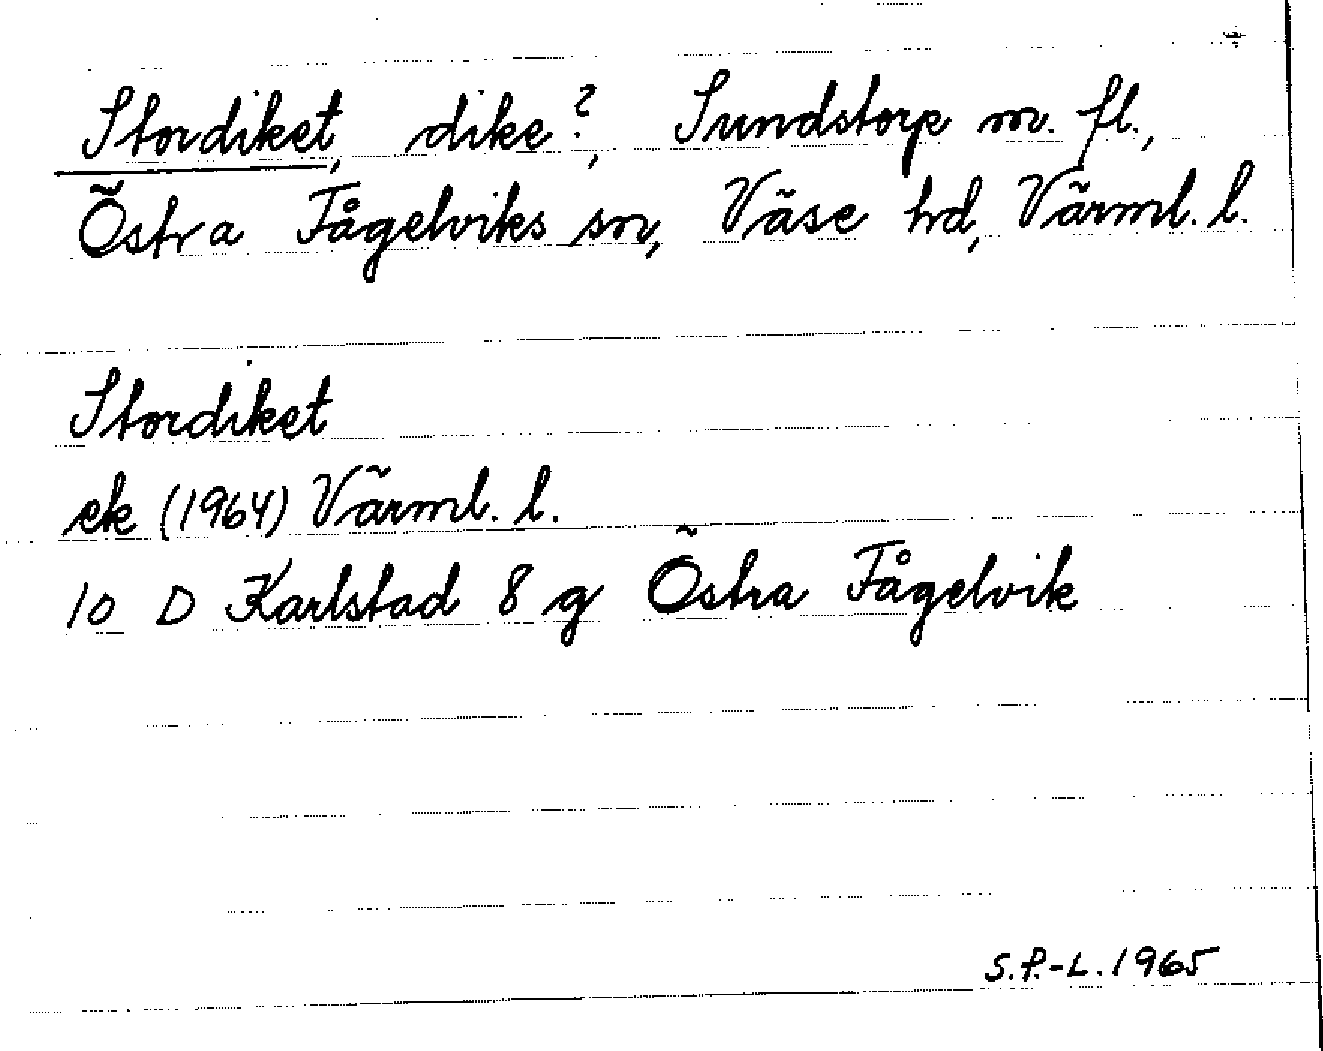 Stordiket, dike?, Sundstorp m. fl.,
Östra Fågelviks sn, Väse hd, Värml. l.
Stordiket
ek (1964) Värml. l.
10 D Karlstad 8 g Östra Fågelvik
S.P.-L. 1965